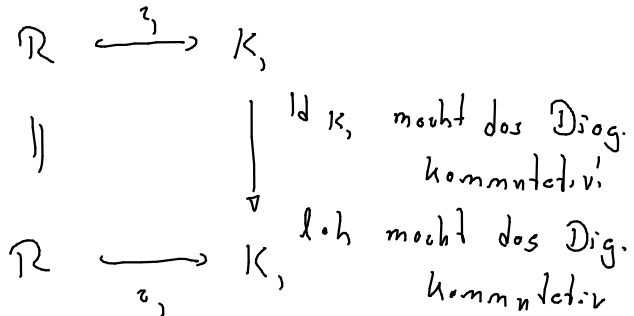 R → K,
Id K, macht das Diag.
kommutativ!
l∘h macht das Dig.
R → K,
kommutativ